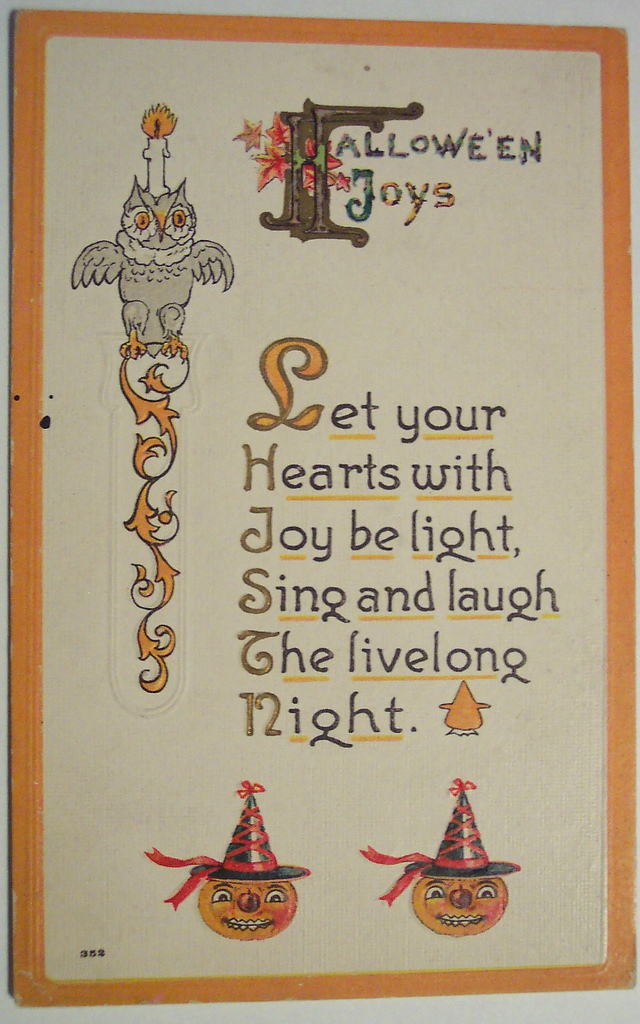 Hallowe'en
Joys
Let your
Hearts with
Joy be light,
Sing and laugh
The livelong
Night.
352